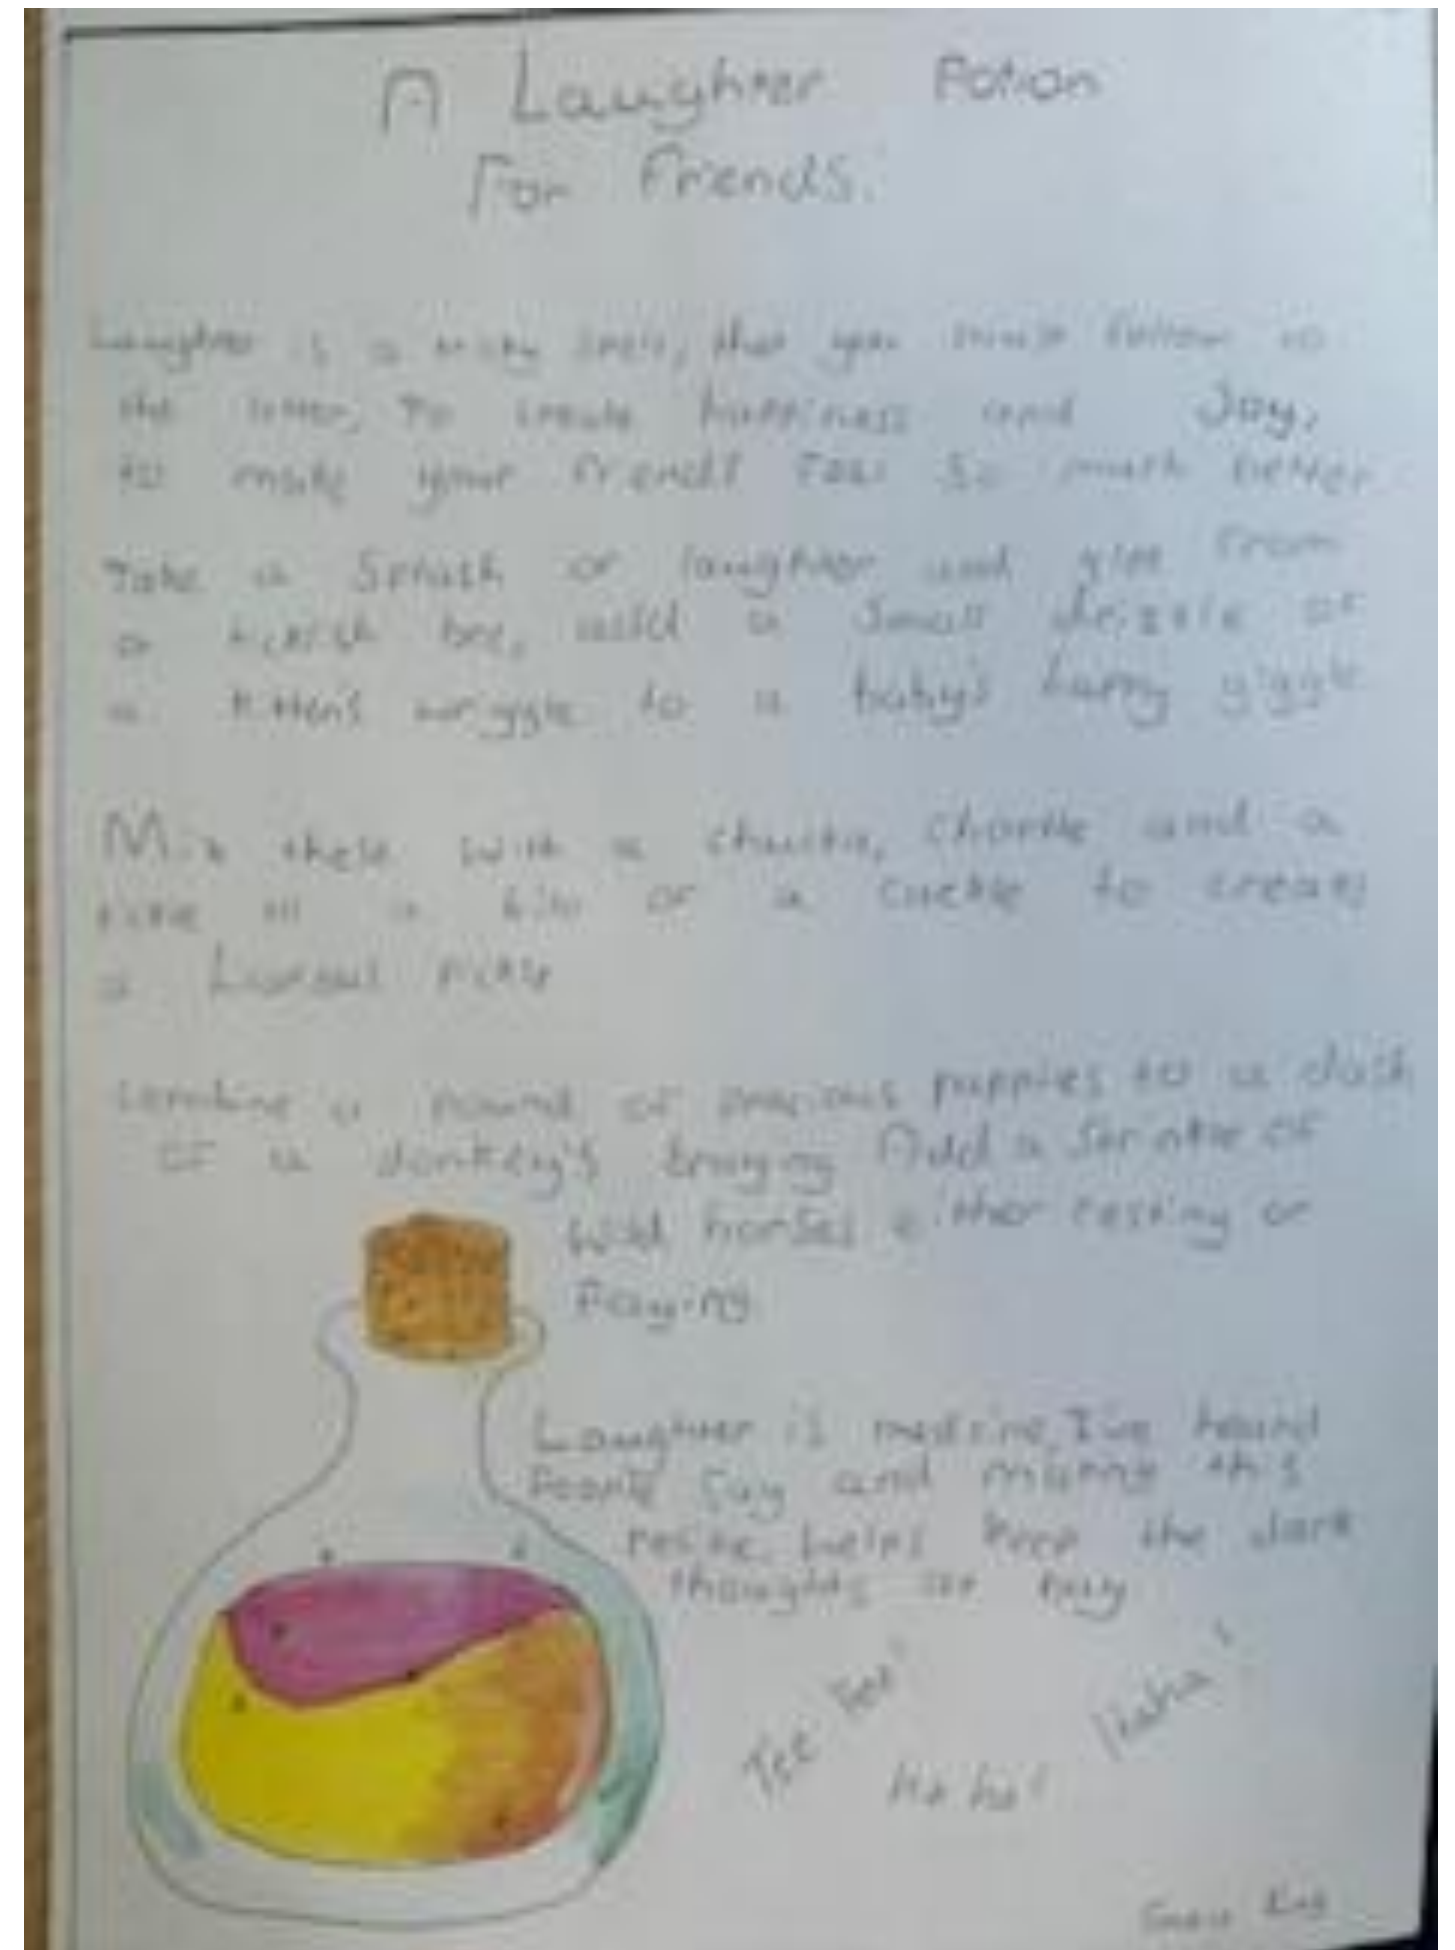 A Laughter Potion
For Friends.
Laughter is a tricky spell, that you must follow to
the letter, To create happiness and Joy,
to make your friends feel so much better
Take a Splash of laughter and glee from
a ticklish bee, add a Small drizzle of
a kitten's wriggle to a baby's happy giggle
Mix these with a chuckle, chortle and a
tickle in a kilo of a cackle to create
a pickle
Combine a pound of precious puppies to a dash
of a donkey's braying Add a Sprinkle of
wild horses either resting or
Playing
Laughter is medicine, I've heard
People Say and making this
recipe, helps keep the dark
thoughts at bay
Tee Hee!
Ha ha!
Hahaha!
King